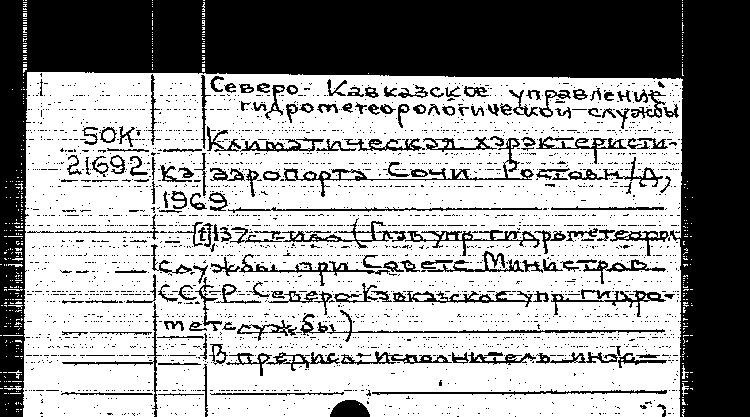 Северо-Кавказское управление
гидрометеорологической службы
50К
21692
Климатическая характеристи-
ка аэропорта Сочи. Ростов н/Д,
1969
137с. с илл (Глав упр гидрометеорол
службы при Совете Министров
СССР Северо-Кавказское упр. гидро-
метслужбы)
В предисл: исполнитель инж